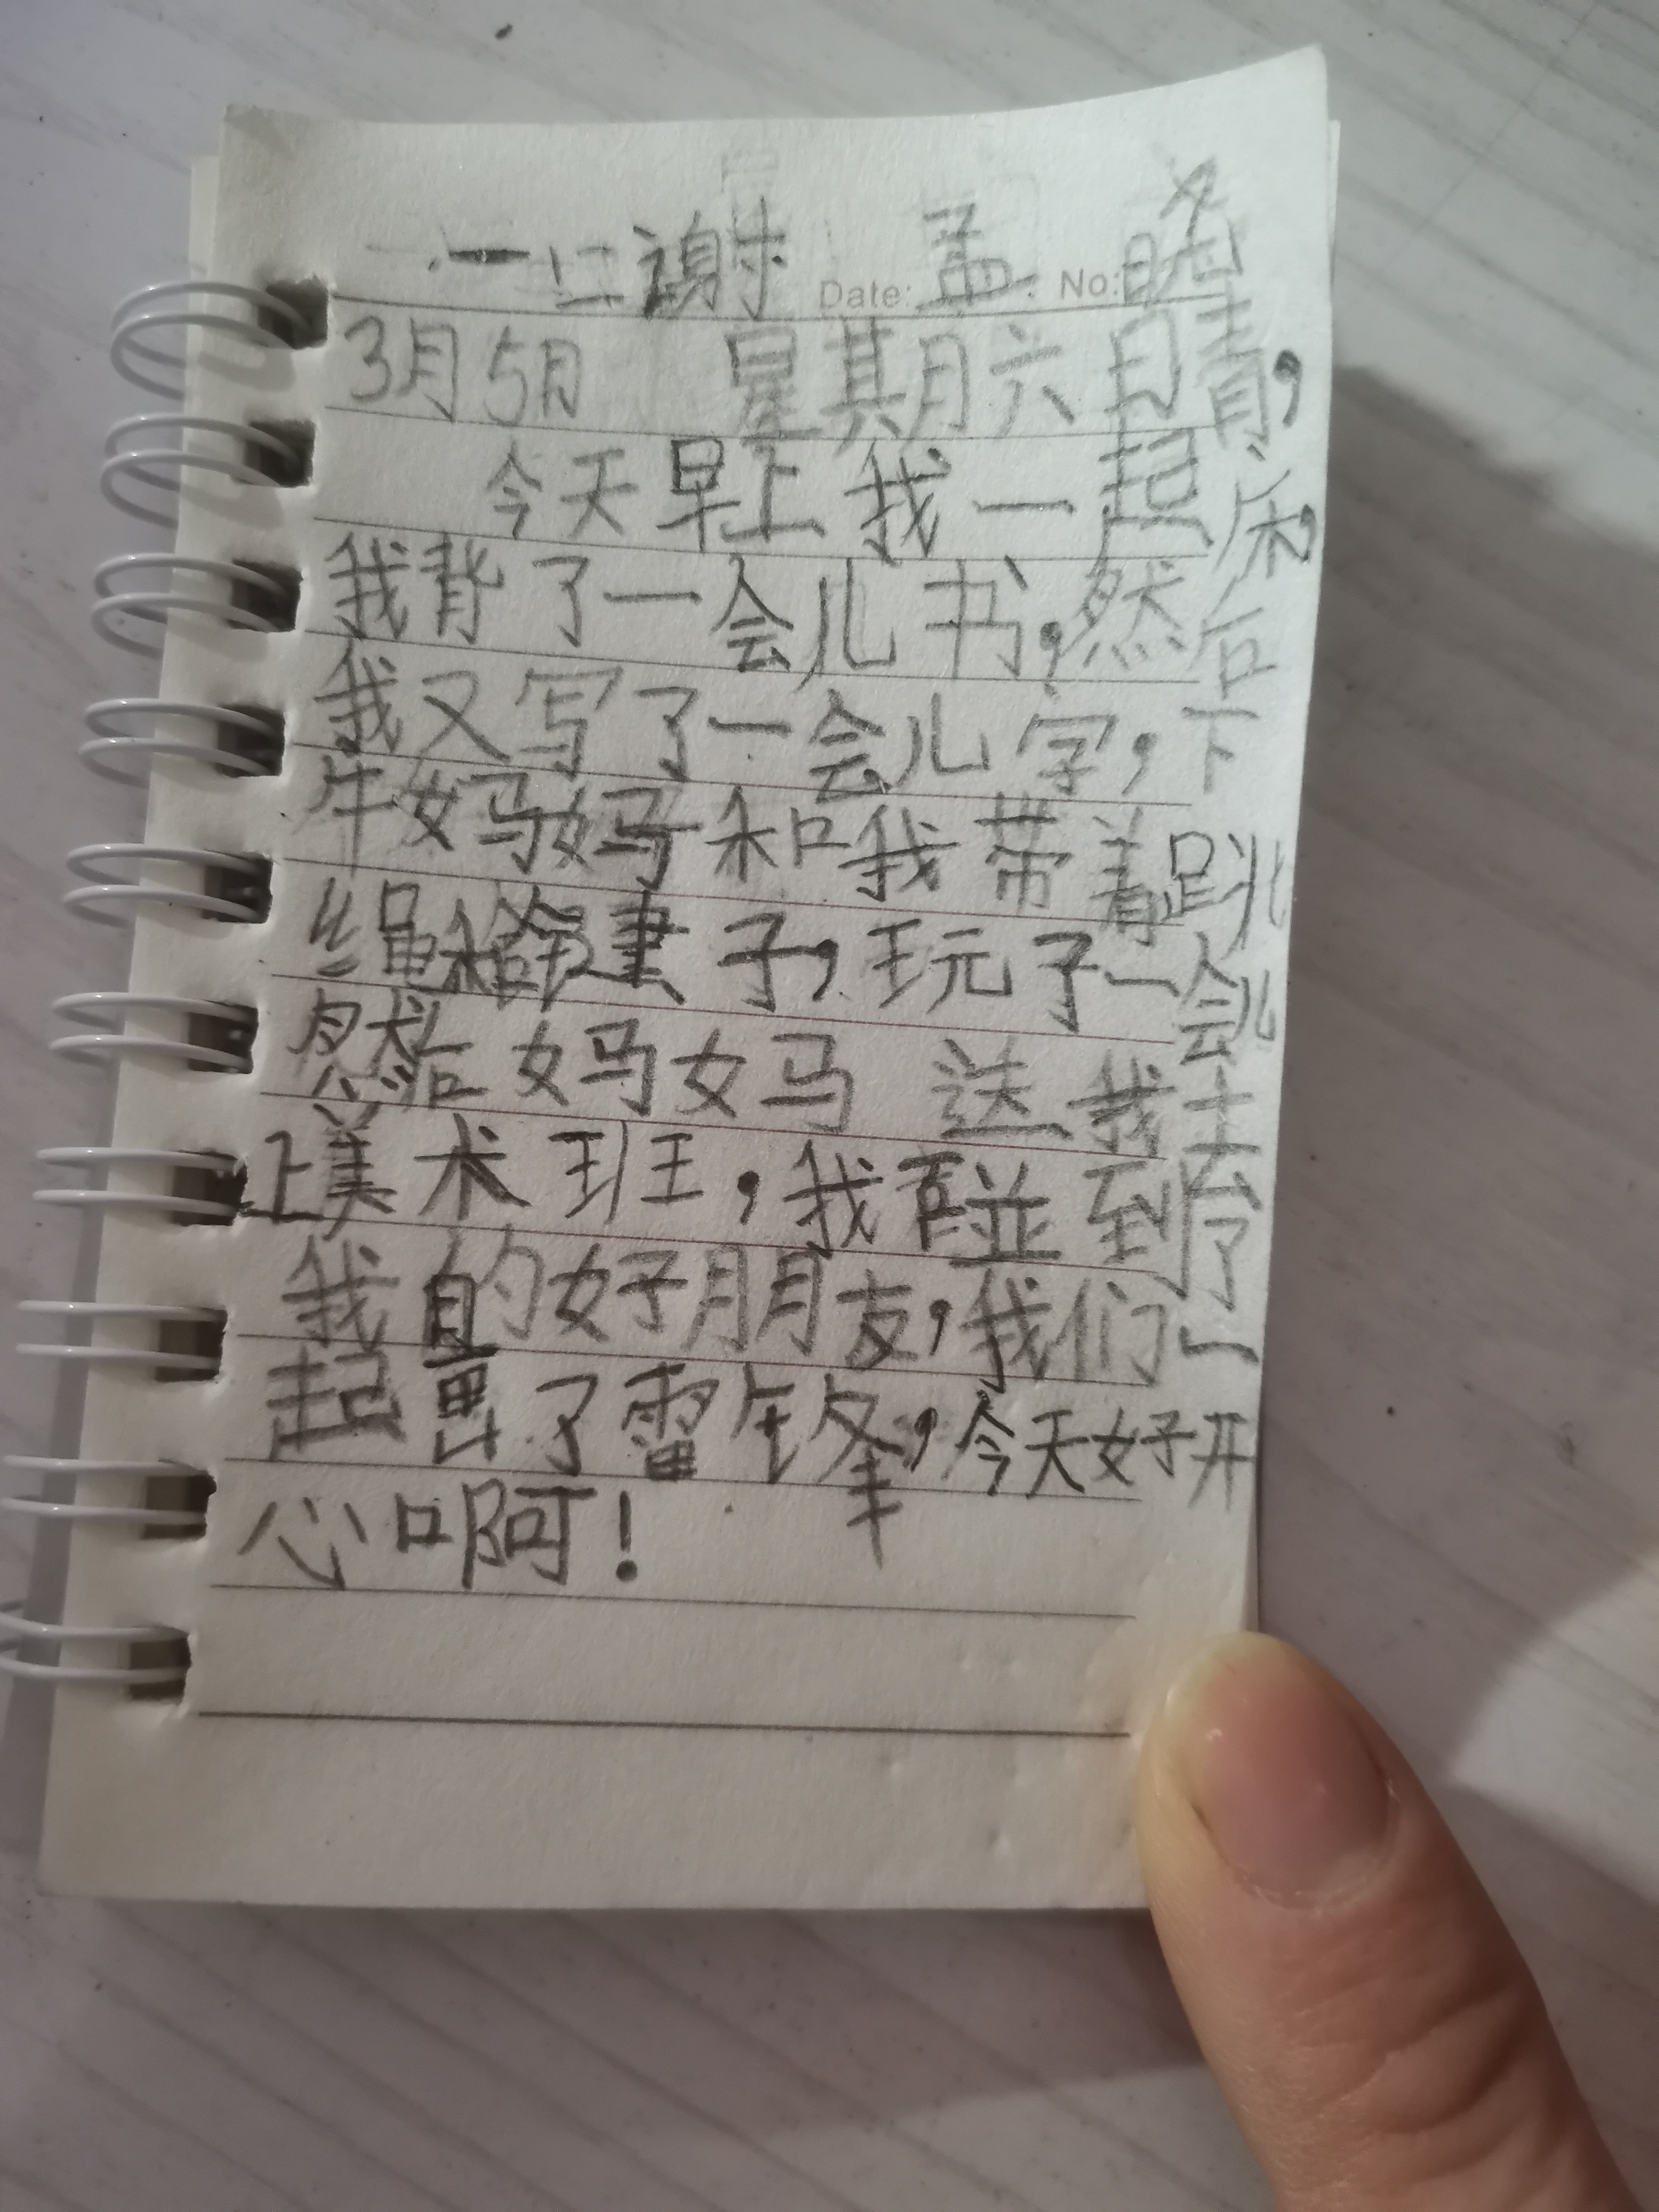 一.二 谢孟
Date: No:
3月5日 星期六 晴,
今天早上我一起床,
我背了一会儿书,然后
我又写了一会儿字,下
午妈妈和我带着跳
绳和毽子,玩了一会儿
然后妈妈送我去
上美术班,我碰到了
我的好朋友,我们一
起画了雷锋,今天好开
心啊!